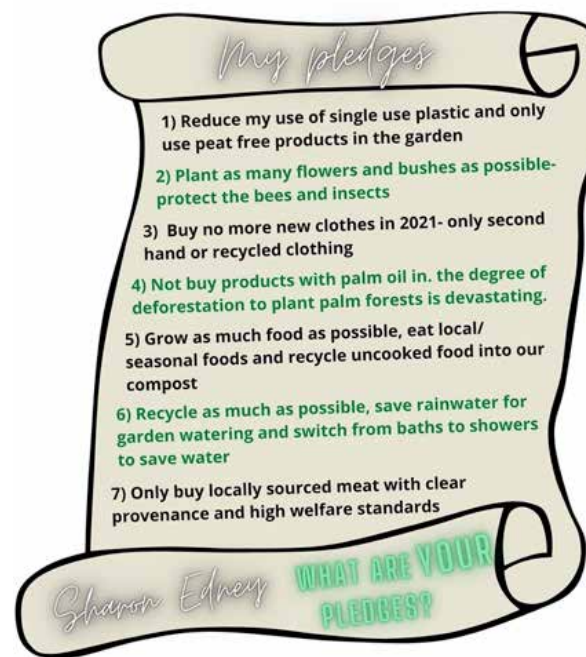 My pledges
1) Reduce my use of single use plastic and only
use peat free products in the garden
2) Plant as many flowers and bushes as possible-
protect the bees and insects
3) Buy no more new clothes in 2021- only second
hand or recycled clothing
4) Not buy products with palm oil in. the degree of
deforestation to plant palm forests is devastating.
5) Grow as much food as possible, eat local/
seasonal foods and recycle uncooked food into our
compost
6) Recycle as much as possible, save rainwater for
garden watering and switch from baths to showers
to save water
7) Only buy locally sourced meat with clear
provenance and high welfare standards
Sharon Edney
WHAT ARE YOUR
PLEDGES?